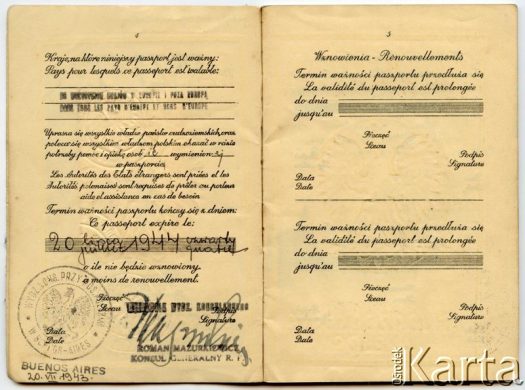 4
Kraje, na które niniejszy paszport jest ważny:
Pays pour lesquels ce passeport est valable:
DO WSZYSTKICH KRAJÓW W EUROPIE I POZA EUROPĄ
POUR TOUS LES PAYS D'EUROPE ET HORS D'EUROPE
Uprasza się wszystkie władze państw cudzoziemskich, oraz
poleca się wszystkim władzom polskim okazać w razie
potrzeby pomoc i opiekę osobie wymienionej
w paszporcie.
Les Autorités des Etats étrangers sont priées et les
Autorités polonaises sont requises de prêter au porteur
aide et assistance en cas de besoin
Termin ważności paszportu kończy się z dniem:
Ce passeport expire le:
20 lipca 1944 czwarty
juillet quatre
o ile nie będzie wznowiony
à moins de renouvellement.
Pieczęć
Sceau
WYDZIAŁ KONSULARNY
Podpis
Signature
Data
Date
ROMAN MAZURKIEWICZ
KONSUL GENERALNY R. P.
BUENOS AIRES
20. VII. 1943.
5
Wznowienia - Renouvellements
Termin ważności paszportu przedłuża się
La validité du passeport est prolongée
do dnia
jusqu'au
Pieczęć
Sceau
Podpis
Signature
Data
Date
Termin ważności paszportu przedłuża się
La validité du passeport est prolongée
do dnia
jusqu'au
Pieczęć
Sceau
Podpis
Signature
Data
Date
ośrodek
Karta